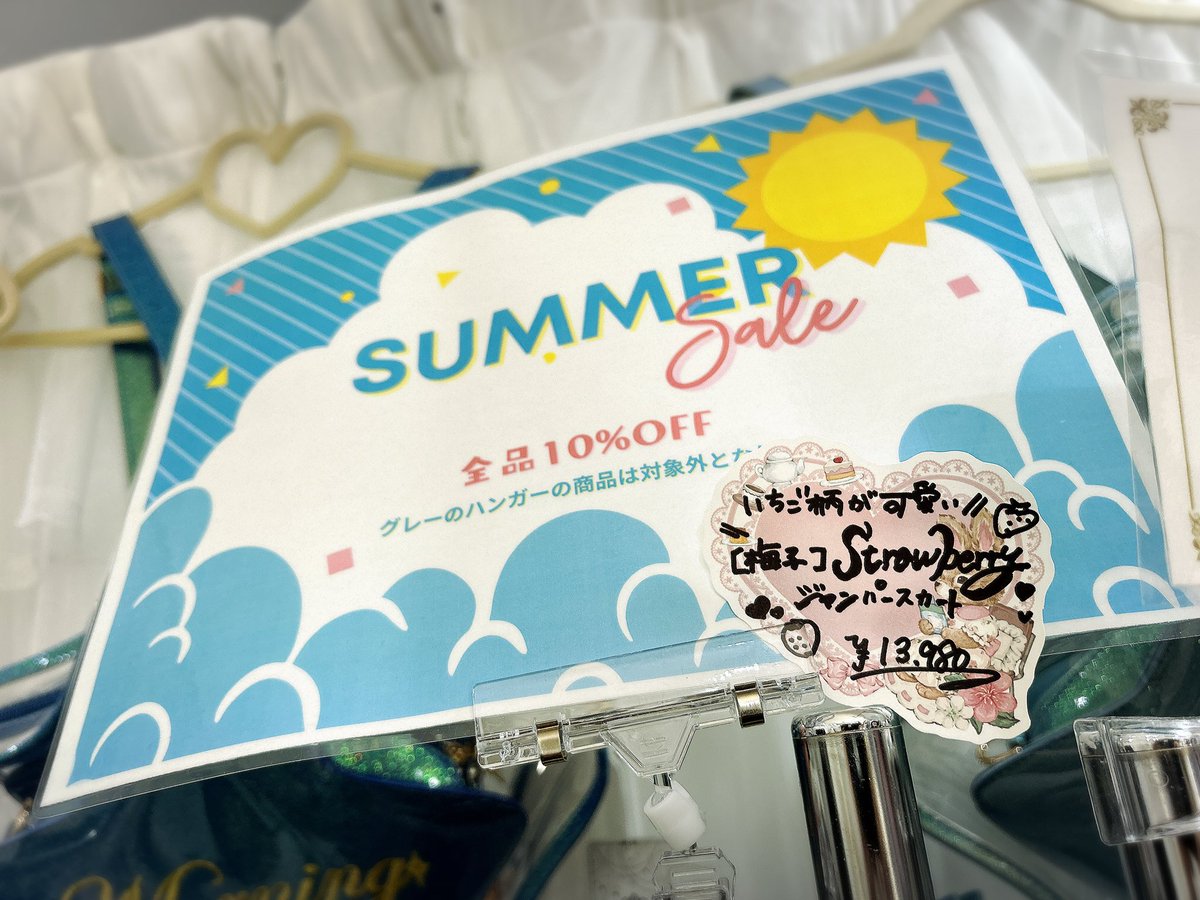 SUMMER
Sale
全品10%OFF
グレーのハンガーの商品は対象外とな
いちご柄が可愛い//
[梅子] Strawberry
ジャンパースカート
¥13,980